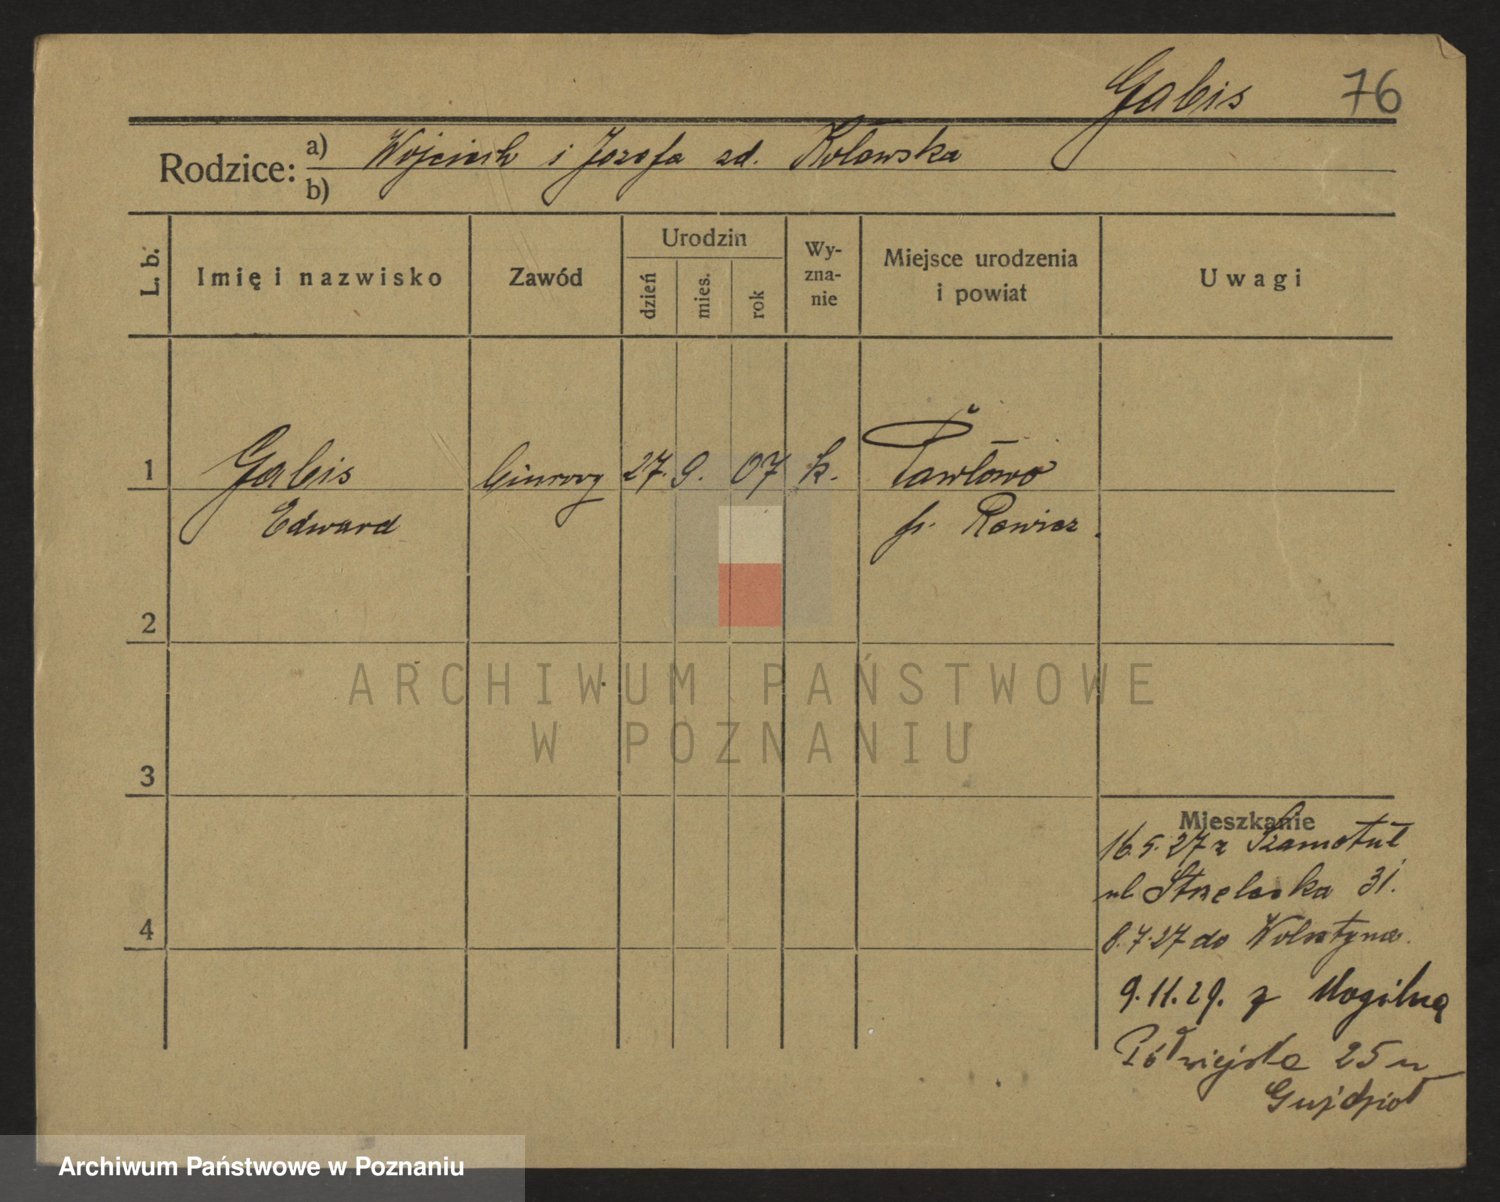 Gabis 76
Rodzice: a) Wojciech i Józefa zd. Kolowska
b)
L. b. Imię i nazwisko Zawód Urodzin dzień mies. rok Wy-zna-nie Miejsce urodzenia i powiat Uwagi
1 Gabis biurowy 27. 9. 07 k. Pawłowo
Edward p. Rawicz.
2
ARCHIWUM PAŃSTWOWE
W POZNANIU
3
Mieszkanie
16.5.27 z Szamotuł
ul Strzelecka 31.
4
8.7.27 do Wolsztyna.
9.11.29. z Mogilna
Półwiejska 25 u
Archiwum Państwowe w Poznaniu